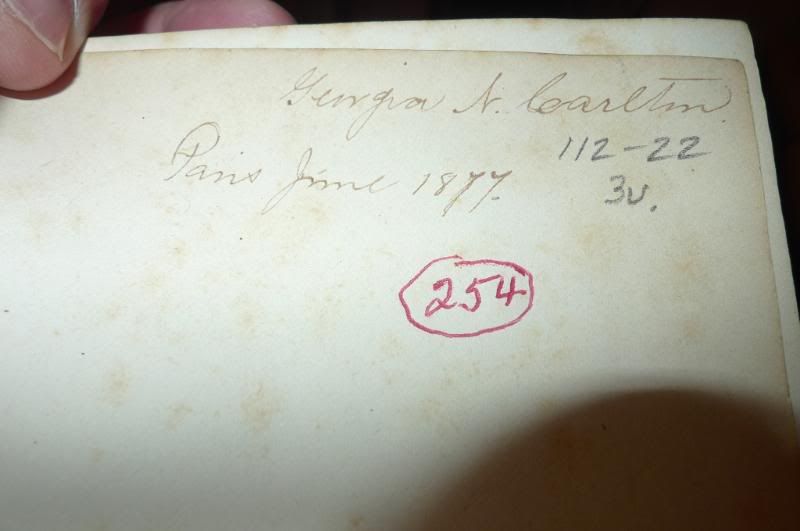 Georgia N. Carlton.
Paris June 1877.
112-22
3v.
254